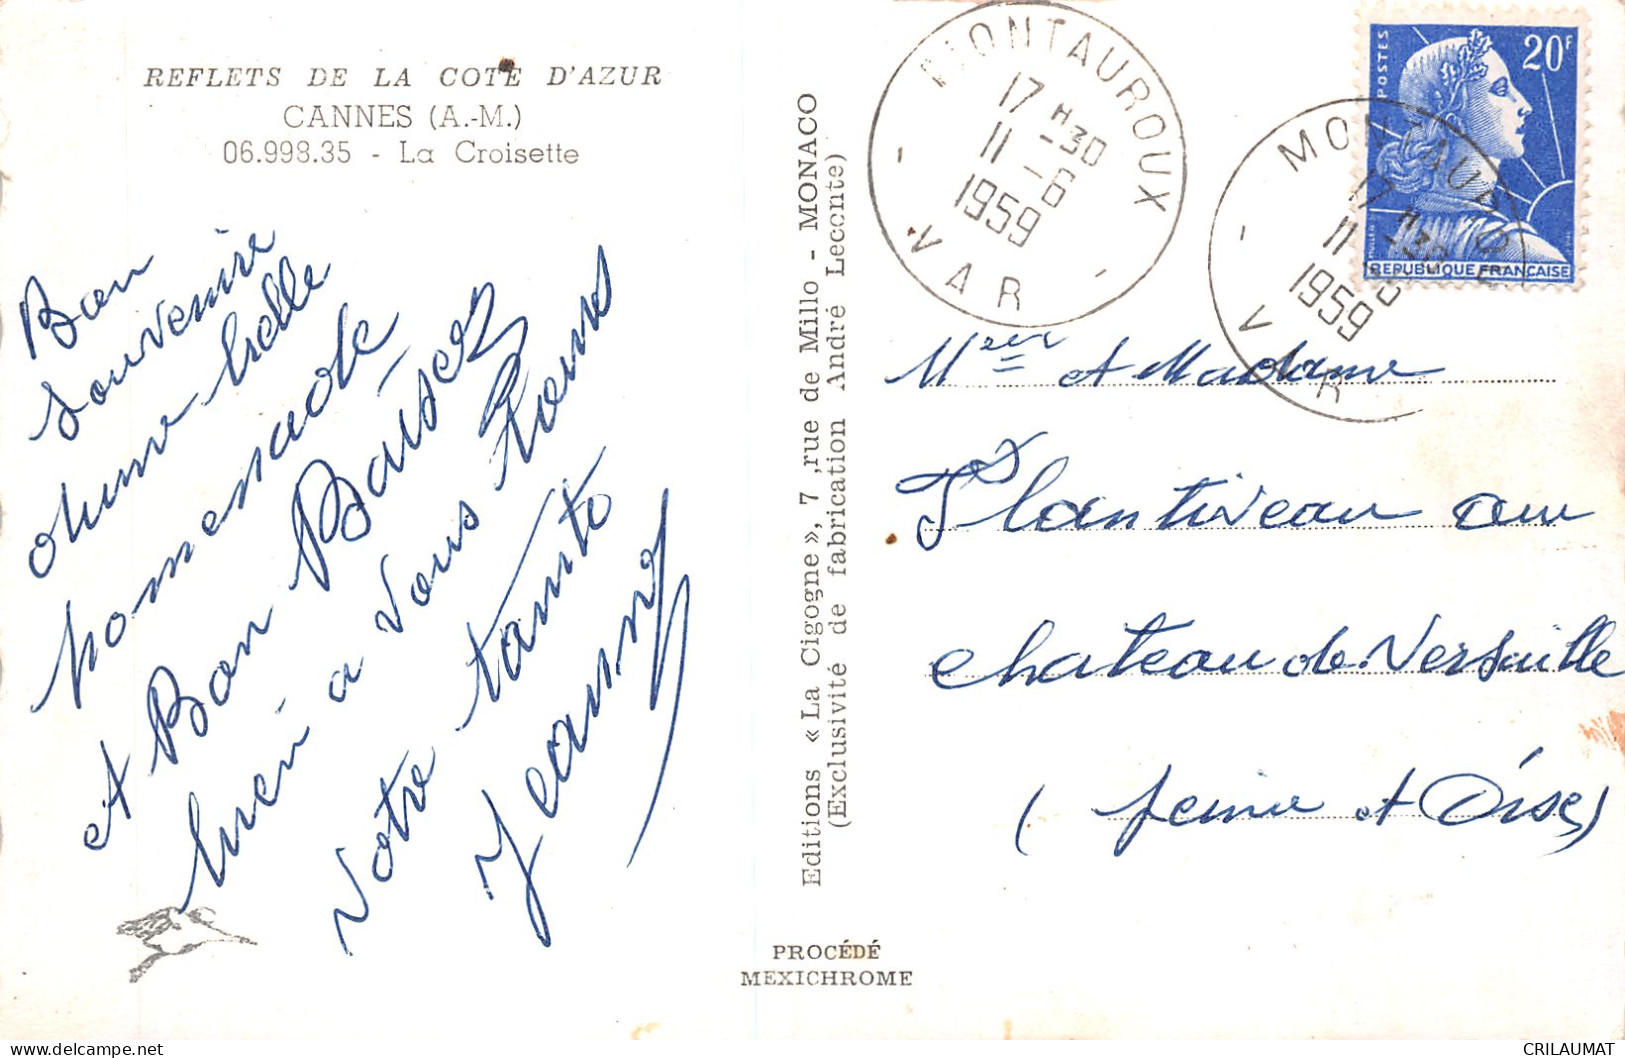 REFLETS DE LA COTE D'AZUR
CANNES (A.-M.)
06.998.35 - La Croisette
Bon
Souvenire
d'une belle
pomenade
et Bon Baiser
lucien a vous tous
Votre tanto
Jeanny
Editions « La Cigogne », 7 ,rue de Millo - MONACO
(Exclusivité de fabrication André Leconte)
PROCÉDÉ
MEXICHROME
MONTAUROUX
17 H 30
11 - 6
1959
VAR
POSTES
20F
REPUBLIQUE FRANÇAISE
MONTAUROUX
17 H 30
11 - 6
1959
VAR
Mseur et Madame
Plantiveau au
chateau de Versaille
(seine et Oise)
CRILAUMAT